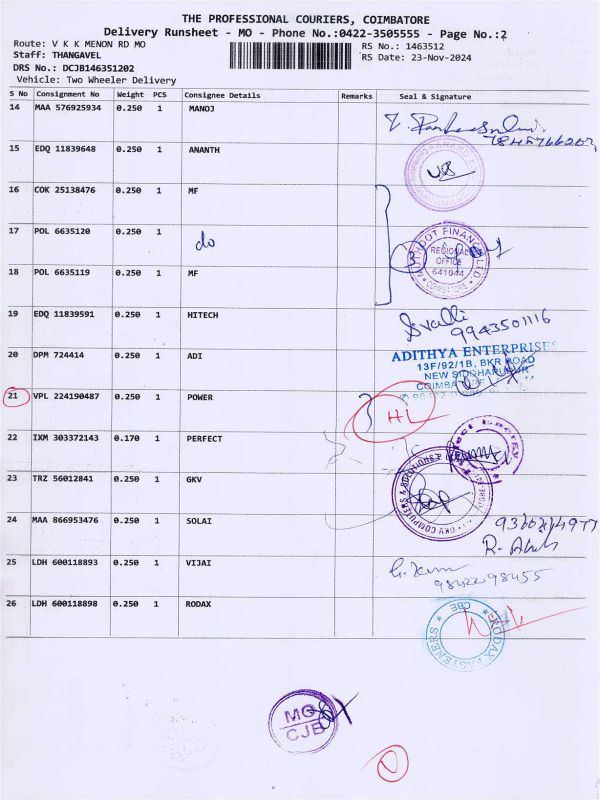 THE PROFESSIONAL COURIERS, COIMBATORE
Delivery Runsheet - MO - Phone No.:0422-3505555 - Page No.:2
Route: V K K MENON RD MO
RS No.: 1463512
Staff: THANGAVEL
RS Date: 23-Nov-2024
DRS No.: DCJB146351202
Vehicle: Two Wheeler Delivery
S No Consignment No Weight PCS Consignee Details Remarks Seal & Signature
14 MAA 576925934 0.250 1 MANOJ
15 EDQ 11839648 0.250 1 ANANTH
16 COK 25138476 0.250 1 MF
17 POL 6635120 0.250 1 do
REGIONAL
OFFICE
641044
3
18 POL 6635119 0.250 1 MF
19 EDQ 11839591 0.250 1 HITECH
9943501116
20 DPM 724414 0.250 1 ADI
ADITHYA ENTERPRISES
13F/92/1B, BKR ROAD
NEW SIDDHAPUDUR
21 VPL 224190487 0.250 1 POWER
HL
22 IXM 303372143 0.170 1 PERFECT
23 TRZ 56012841 0.250 1 GKV
24 MAA 866953476 0.250 1 SOLAI
25 LDH 600118893 0.250 1 VIJAI
26 LDH 600118898 0.250 1 RODAX
RODAX FASTENERS
CBE
MG
CJB